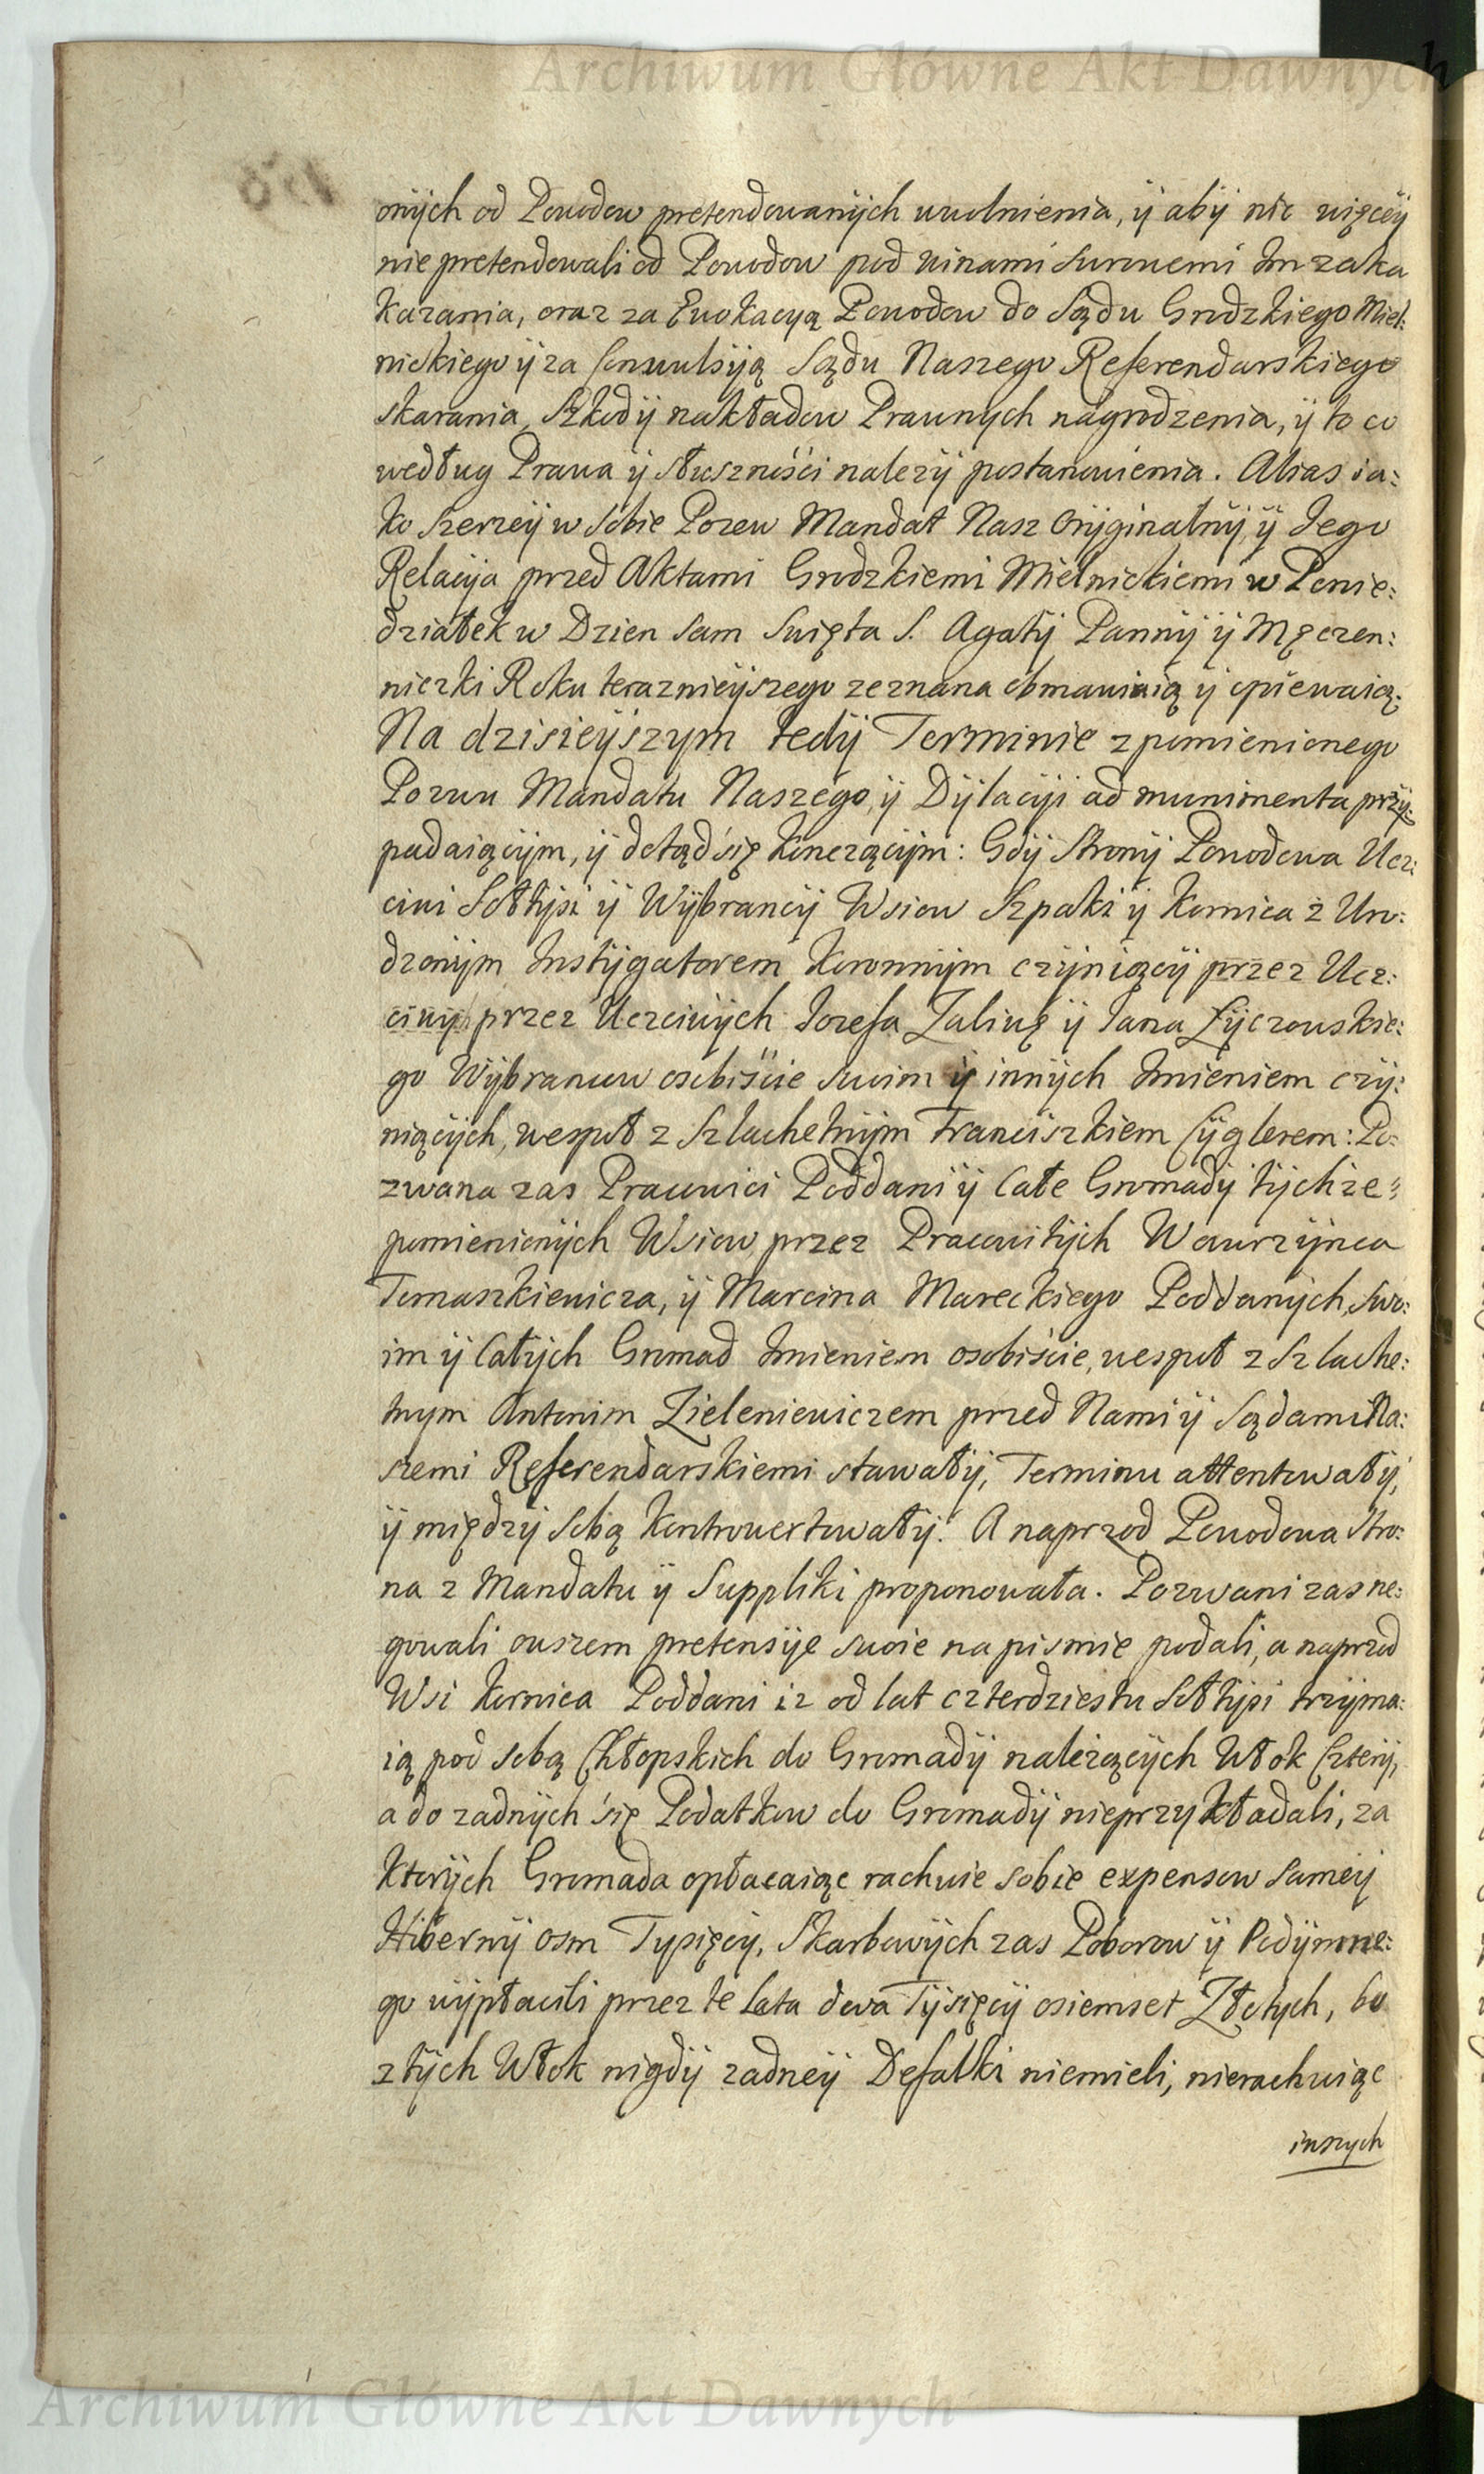 Archiwum Główne Akt Dawnych
onÿch od Powodow pretendowanÿch uwolnienia, ÿ abÿ nic więcÿ
nie pretendowali od Powodow pod winami surowemi Im zaka
kazania, oraz za Ewokacyą Powodow do Sądu Grodzkiego Miel:
nickiego ÿ za Conwulsÿą Sądu Naszego Referendarskiego
skarania, Szkodÿ nakładow Prawnych nagrodzenia, ÿ to co
według Prawa ÿ słusznośći nalezÿ postanowienia. Alias ia:
ko szerzeÿ w sobie Pozew Mandat Nasz Orÿginalnÿ, ÿ Jego
Relacÿa przed Aktami Grodzkiemi Mielnickiemi w Ponie:
działek w Dzien sam Swięta S. Agatÿ Pannÿ ÿ Męczen:
niczki Roku terazniejszego zeznana obmawiaią ÿ opiewaią:
Na dzisieÿszym tedÿ Terminie z pomienionego
Pozwu Mandatu Naszego, ÿ Dÿlacÿi ad munimenta przÿ:
padaiącÿm, ÿ dotąd się konczącÿm: Gdÿ Stronÿ Powodowa Ucz:
ciwi Sołtÿsi ÿ Wÿbrancÿ Wsiow Szpaki ÿ Kornica z Uro:
dzonÿm Instÿgatorem Koronnÿm czÿniącÿ przez Ucz:
ciwÿ przez Uczciwÿch Jozefa Zaliwę ÿ Jana Łÿczowskie:
go Wÿbrancow osobiście swoim ÿ innÿch Imieniem czÿ:
niącÿch, wespoł z Szlachetnÿm Franciszkiem Cÿglerem: Po:
zwana zas Pracowici Poddani ÿ Całe Gromadÿ tÿchze:
pomienionÿch Wsiow przez Pracowitÿch Wawrzÿnca
Tomaszkiewicza, ÿ Marcina Mareckiego Poddanÿch, swo:
im ÿ Całÿch Gromad Imieniem osobiście, wespoł z Szlache:
tnym Antonim Zieleniewiczem przed Nami ÿ Sądami Na:
szemi Referendarskiemi stawałÿ, Terminu attentowałÿ,
ÿ międzÿ sobą kontrowertowałÿ: A naprzod Powodowa Stro:
na z Mandatu ÿ Suppliki proponowała. Pozwani zas ne:
gowali owszem pretensÿe swoie na pismie podali, a naprzod
Wsi Kornica Poddani iz od lat czterdziestu Sołtÿsi trzÿma:
ią pod sobą Chłopskich do Gromadÿ należącÿch Włok Czterÿ,
a do zadnÿch się Podatkow do Gromadÿ nieprzykładali, za
ktorÿch Gromada opłacaiąc rachuie sobie expensow sameÿ
Hibernÿ osm Tysięcÿ, Skarbowÿch zas Poborow ÿ Podÿmne:
go wÿpłacili przez te lata dwa Tÿsięcÿ osiemset Złotych, bo
z tÿch Włok nigdÿ zadneÿ Defalki niemieli, nierachuiąc
inszych
Archiwum Główne Akt Dawnych